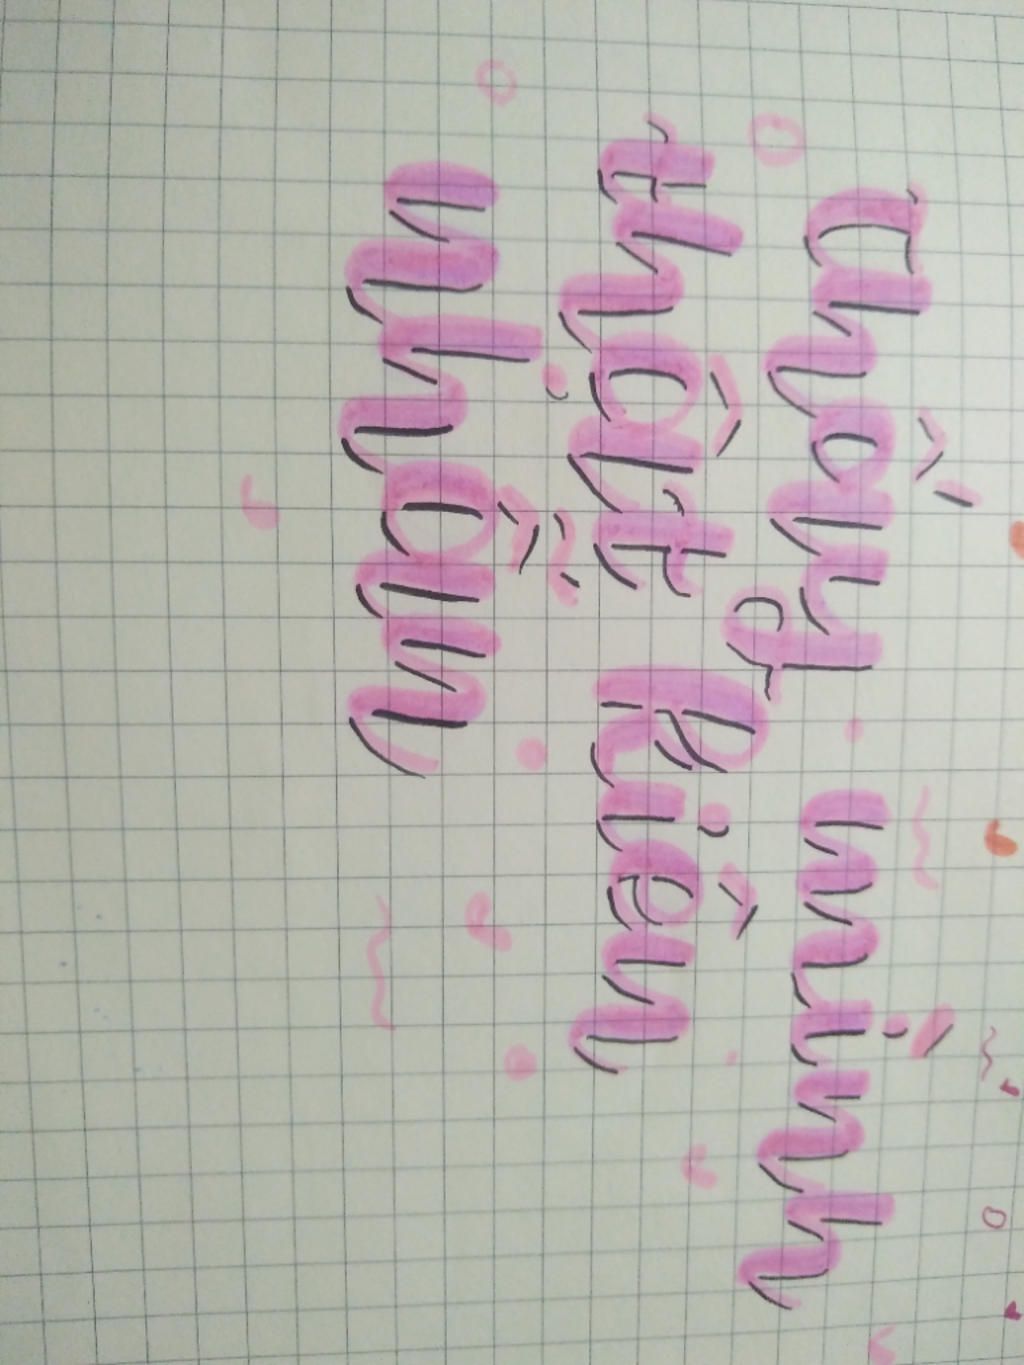 chấy mình
thật kiên
nhẫn